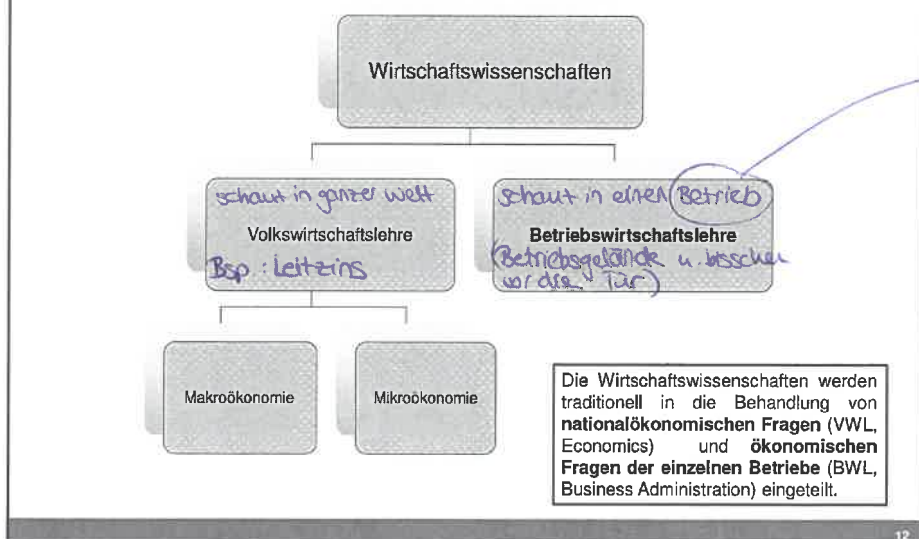 Wirtschaftswissenschaften
schaut in ganzer Welt
Volkswirtschaftslehre
Bsp.: Leitzins
schaut in einen Betrieb
Betriebswirtschaftslehre
(Betriebsgelände u. bisschen
vor die Tür)
Makroökonomie
Mikroökonomie
Die Wirtschaftswissenschaften werden
traditionell in die Behandlung von
nationalökonomischen Fragen (VWL,
Economics) und ökonomischen
Fragen der einzelnen Betriebe (BWL,
Business Administration) eingeteilt.
12